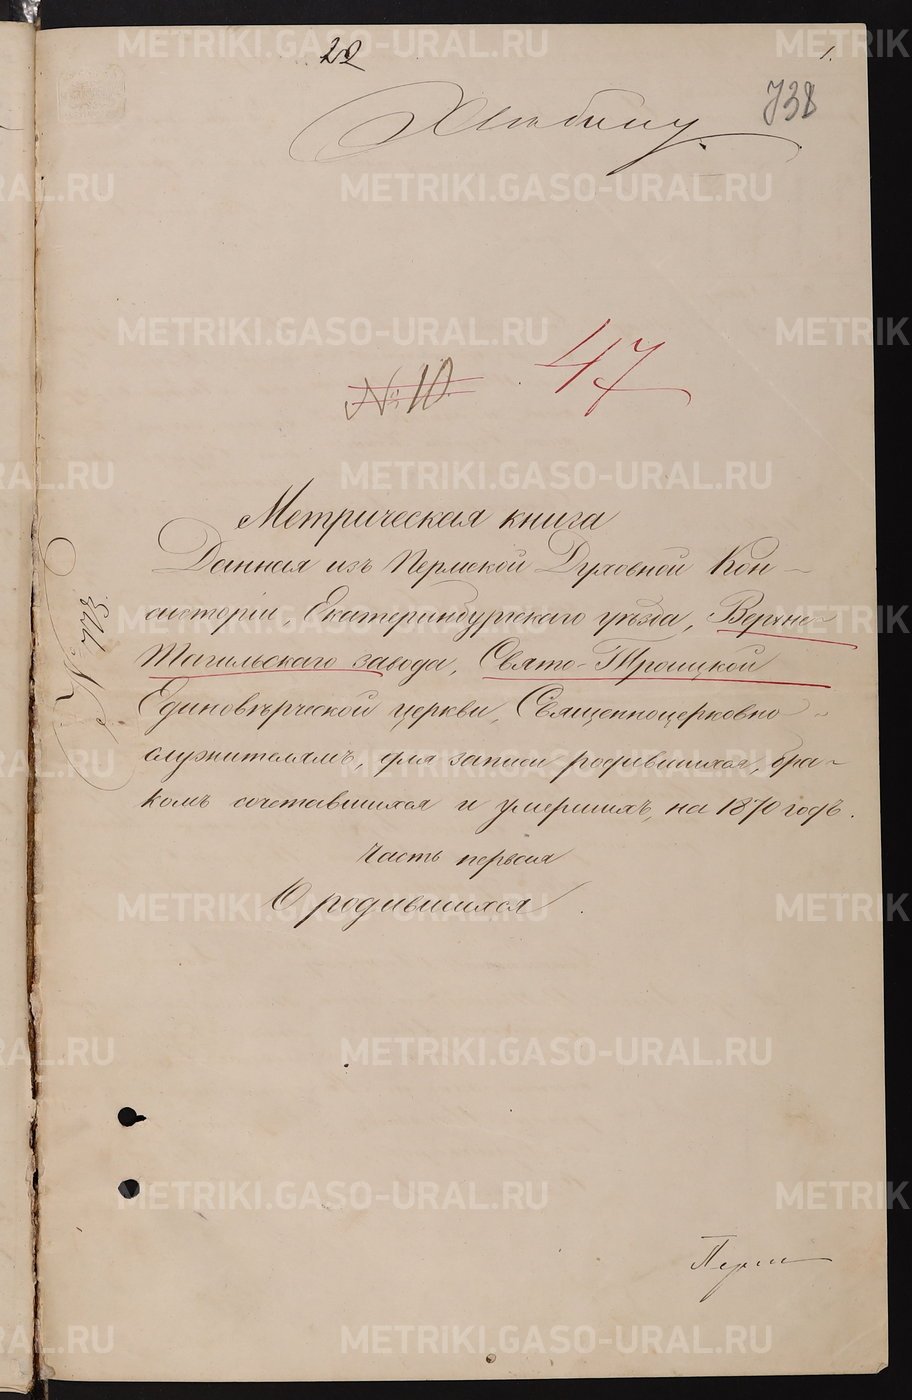 22
1.
738
№ 10.
47
Метрическая книга
Данная изъ Пермской Духовной Кон-
систоріи, Екатеринбургскаго уѣзда, Верхне-
Тагильскаго завода, Свято-Троицкой
Единовѣрческой церкви, Священноцерковно-
служителямъ, для записи родившихся, бра-
комъ сочетавшихся и умершихъ, на 1870 годъ.
часть первая
О родившихся.
METRIKI.GASO-URAL.RU